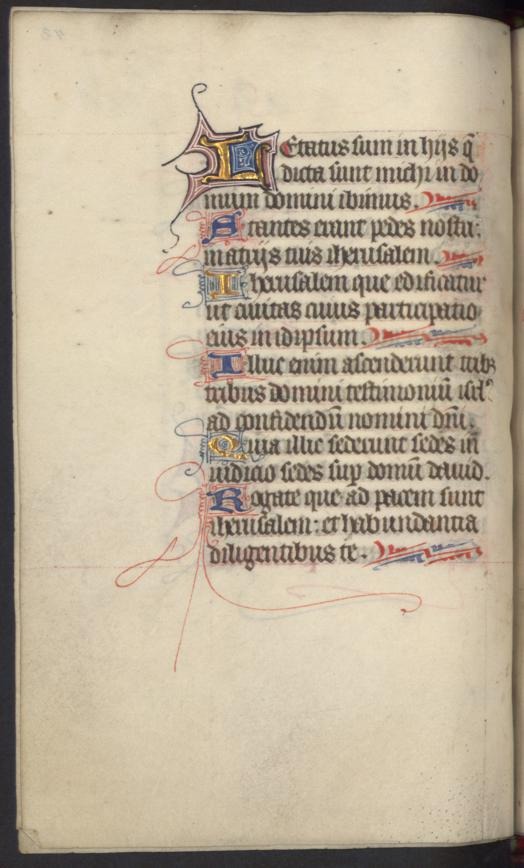 Letatus sum in hijs q̄
dicta sunt michi in do
mum domini ibimus.
Stantes erant pedes nostri:
in atrijs tuis iherusalem.
Iherusalem que edificatur
ut ciuitas cuius participatio
eius in idipsum.
Illuc enim ascenderunt trib9
tribus domini testimoniū isrl'
ad confitendū nomini dn̄i.
Quia illic sederunt sedes in
iudicio sedes sup domū dauid.
Rogate que ad pacem sunt
iherusalem: et habundantia
diligentibus te.